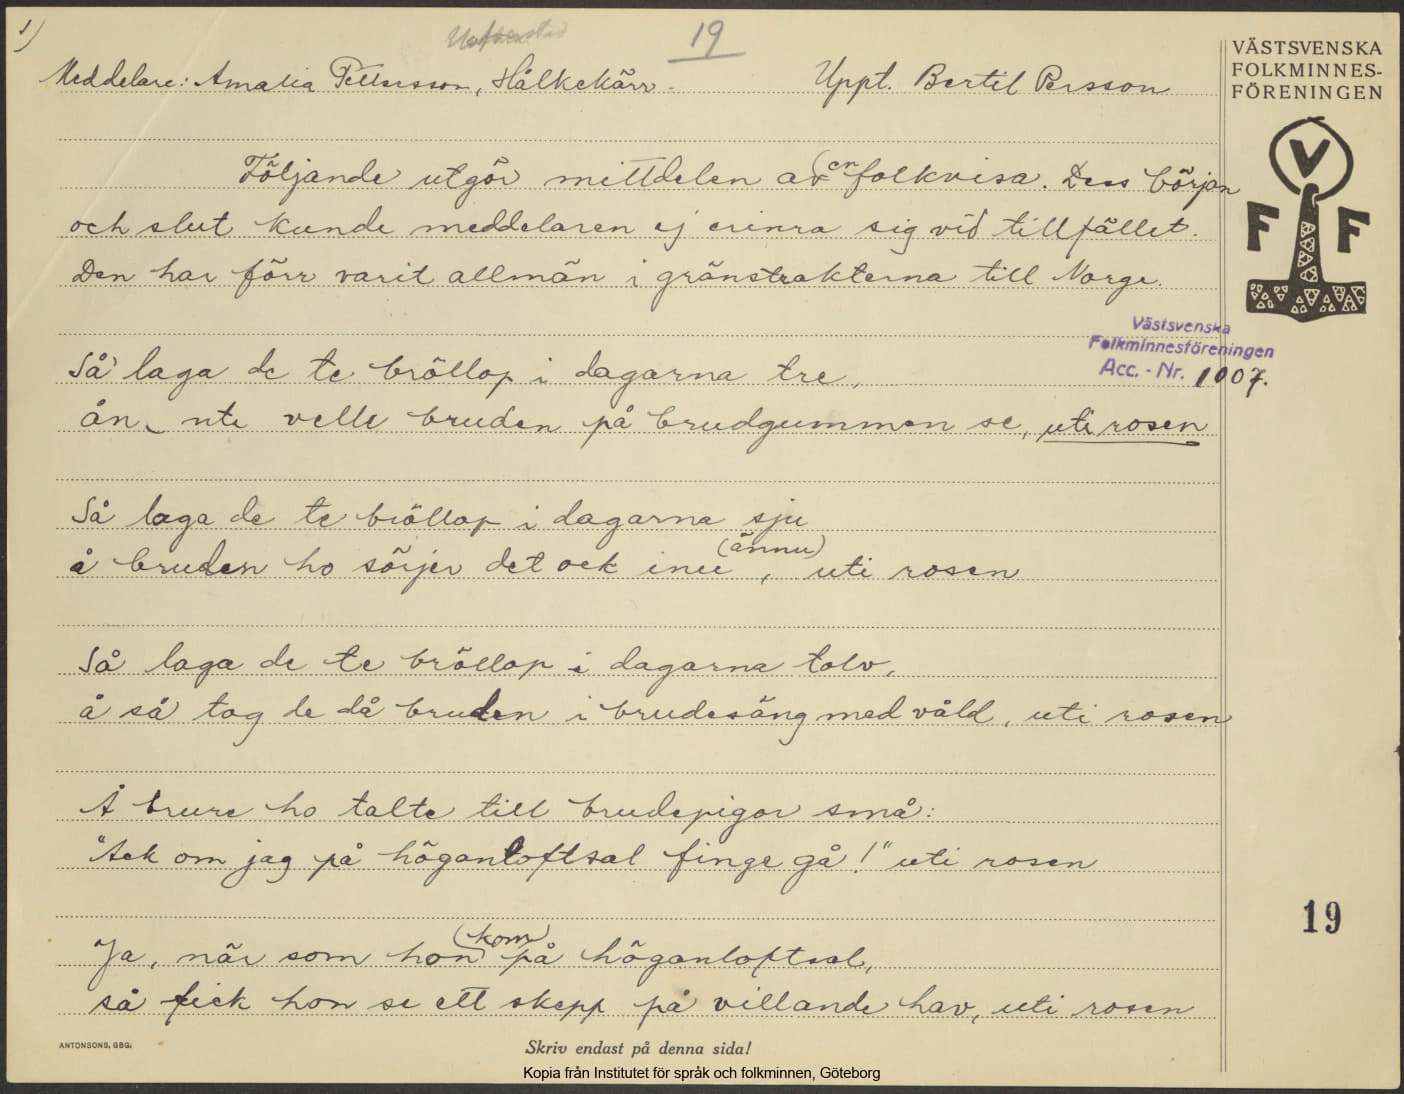 1)
19
Meddelare: Amalia Pettersson, Hålkekärr. Uppt. Bertil Persson
VÄSTSVENSKA
FOLKMINNES-
FÖRENINGEN
V
F F
Följande utgör mittdelen av (en) folkvisa. Dess början
och slut kunde meddelaren ej erinra sig vid tillfället.
Den har förr varit allmän i gränstrakterna till Norge.
Västsvenska
Folkminnesföreningen
Acc. - Nr. 1007.
Så laga de te bröllop i dagarna tre,
än nte velle bruden på brudgummen se, uti rosen
Så laga de te bröllop i dagarna sju
å bruden ho sörjer det ock inu (ännu), uti rosen
Så laga de te bröllop i dagarna tolv,
å så tog de då bruden i brudesäng med våld, uti rosen
Å brure ho talte till brudepigor små:
"Ack om jag på höganloftsal finge gå!" uti rosen
19
Ja, när som hon (kom) på höganloftsal,
så fick hon se ett skepp på villande hav, uti rosen
ANTONSONS, GBG.
Skriv endast på denna sida!
Kopia från Institutet för språk och folkminnen, Göteborg